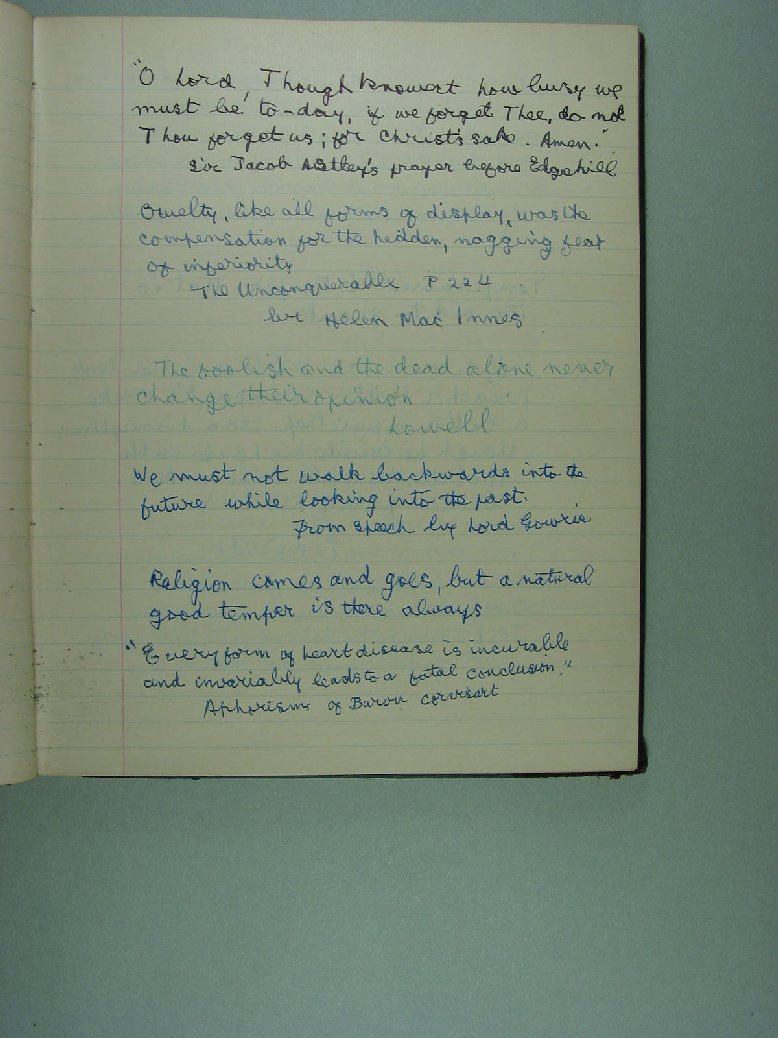 "O Lord, Though knowest how busy we
must be to-day, if we forget Thee, do not
Thou forget us; for Christ's sake. Amen."
Sir Jacob Astley's prayer before Edgehill
Cruelty, like all forms of display, was the
compensation for the hidden, nagging fear
of inferiority
The Unconquerable P 224
by Helen Mac Innes
The foolish and the dead alone never
change their opinion
Lowell
We must not walk backwards into the
future while looking into the past.
From speech by Lord Gowrie
Religion comes and goes, but a natural
good temper is there always
"Every form of heart disease is incurable
and invariably leads to a fatal conclusion."
Aphorisms of Baron Corvisart